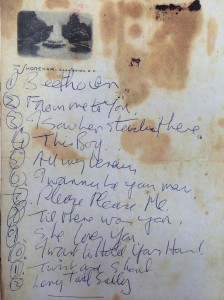 SHOREHAM, WASHINGTON, D.C.
① Beethoven.
② From me to You.
③ I Saw her standing there
④ This Boy.
⑤ All my loving
⑥ I wanna be your man
⑦ Please Please Me.
⑧ Till there was you.
⑨ She loves You
⑩ I want to Hold Your Hand
11 Twist and Shout
12 Long Tall Sally